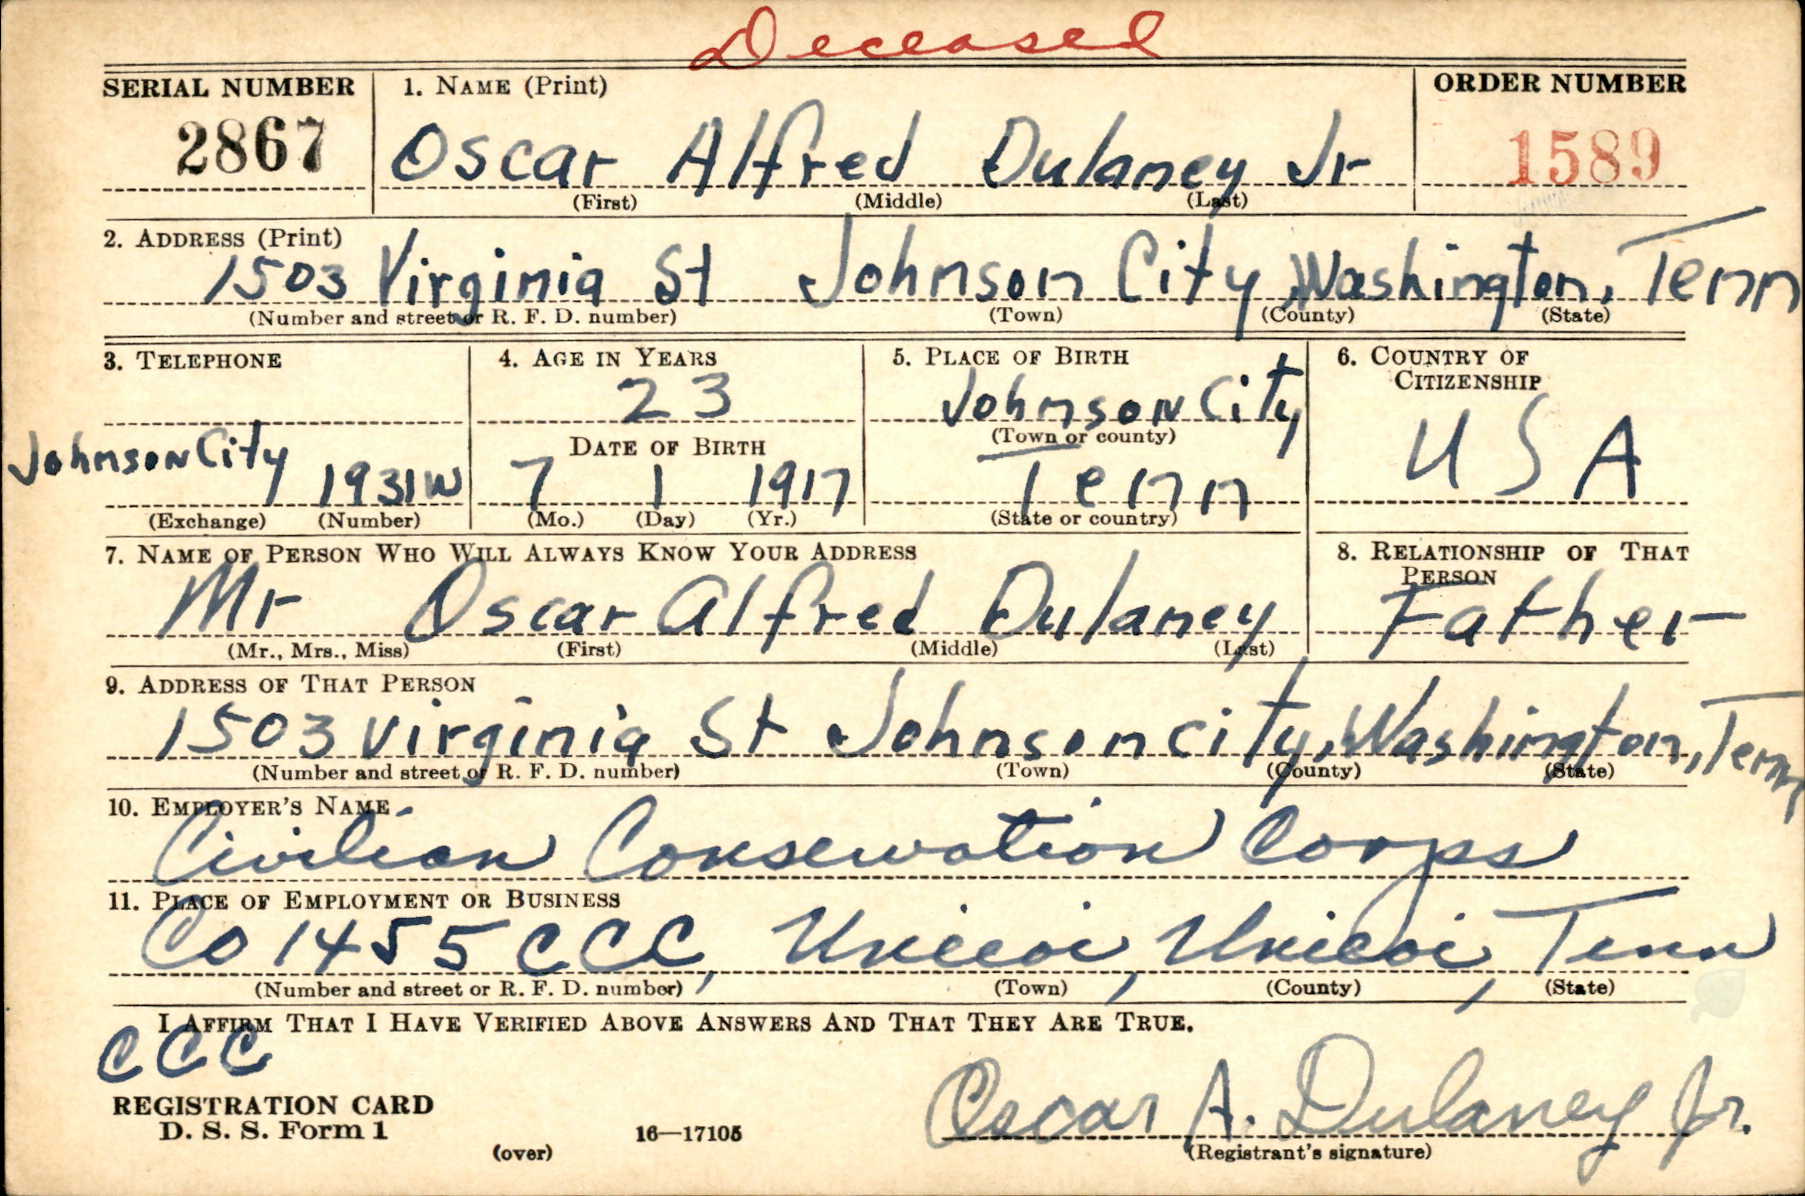 Deceased
SERIAL NUMBER 1. NAME (Print) ORDER NUMBER
2867 Oscar Alfred Dulaney Jr 1589
(First) (Middle) (Last)
2. ADDRESS (Print)
1503 Virginia St Johnson City, Washington, Tenn
(Number and street or R. F. D. number) (Town) (County) (State)
3. TELEPHONE 4. AGE IN YEARS 5. PLACE OF BIRTH 6. COUNTRY OF CITIZENSHIP
23 Johnson City
(Town or county)
DATE OF BIRTH
Johnson City 1931W 7 1 1917 Tenn USA
(Exchange) (Number) (Mo.) (Day) (Yr.) (State or country)
7. NAME OF PERSON WHO WILL ALWAYS KNOW YOUR ADDRESS 8. RELATIONSHIP OF THAT PERSON
Mr Oscar Alfred Dulaney Father
(Mr., Mrs., Miss) (First) (Middle) (Last)
9. ADDRESS OF THAT PERSON
1503 Virginia St Johnson City, Washington, Tenn
(Number and street or R. F. D. number) (Town) (County) (State)
10. EMPLOYER'S NAME
Civilian Conservation Corps
11. PLACE OF EMPLOYMENT OR BUSINESS
Co 1455 CCC, Unicoi, Unicoi, Tenn
(Number and street or R. F. D. number) (Town) (County) (State)
I AFFIRM THAT I HAVE VERIFIED ABOVE ANSWERS AND THAT THEY ARE TRUE.
CCC
REGISTRATION CARD
D. S. S. Form 1 16—17105 Oscar A. Dulaney Jr.
(over) (Registrant's signature)